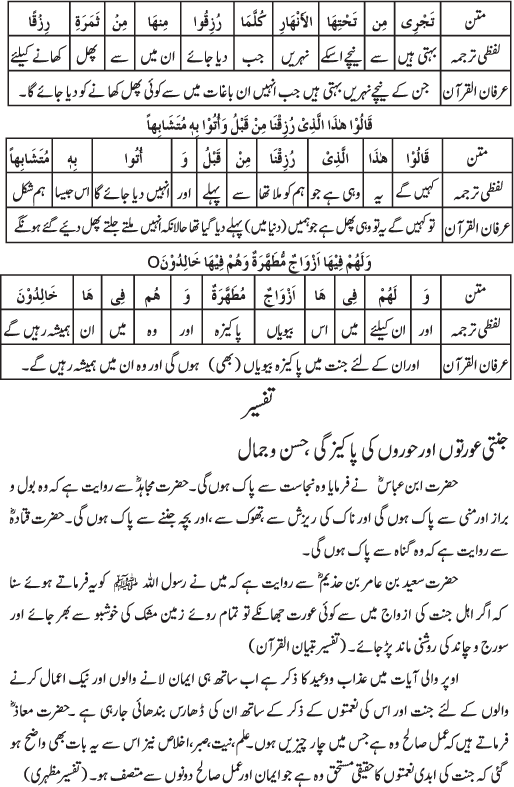 متن تَجْرِی مِن تَحْتِهَا الْأَنْهَار کُلَّمَا رُزِقُوا مِنهَا مِنْ ثَمَرَةٍ رِزْقًا
لفظی ترجمہ بہتی ہیں سے نیچے اسکے نہریں جب دیا جائے ان میں سے پھل کھانے کیلئے
عرفان القرآن جن کے نیچے نہریں بہتی ہیں جب انہیں ان باغات میں سے کوئی پھل کھانے کو دیا جائے گا۔
قَالُوْا هٰذَا الَّذِیْ رُزِقْنَا مِنْ قَبْلُ وَأُتُوْا بِهٖ مُتَشَابِهاً
متن قَالُوْا هٰذَا الَّذِیْ رُزِقْنَا مِنْ قَبْلُ وَ أُتُوا بِهٖ مُتَشَابِهاً
لفظی ترجمہ کہیں گے یہ وہی ہے جو ہم کو ملا تھا سے پہلے اور انہیں دیا جائے گا اس جیسا ہم شکل
عرفان القرآن تو کہیں گے یہ تو وہی پھل ہے جو ہمیں (دنیا میں) پہلے دیا گیا تھا حالانکہ انہیں ملتے جلتے پھل دیئے گئے ہونگے
وَلَهُمْ فِیْهَا اَزْوَاجٌ مُّطَهَّرَةٌ وَهُمْ فِیْهَا خَالِدُوْنَO
متن وَ لَهُمْ فِی هَا اَزْوَاجٌ مُطَهَّرَةٌ وَ هُم فِی هَا خَالِدُوْنَ
لفظی ترجمہ اور ان کیلئے میں اس بیویاں پاکیزہ اور وہ میں ان ہمیشہ رہیں گے
عرفان القرآن اور ان کے لئے جنت میں پاکیزہ بیویاں (بھی) ہوں گی اور وہ ان میں ہمیشہ رہیں گے۔
تفسیر
جنتی عورتوں اور حوروں کی پاکیزگی، حسن و جمال
حضرت ابن عباسؓ نے فرمایا وہ نجاست سے پاک ہوں گی۔ حضرت مجاہدؒ سے روایت ہے کہ وہ بول و
براز اور منی سے پاک ہوں گی اور ناک کی ریزش سے، تھوک سے، اور بچہ جننے سے پاک ہوں گی۔ حضرت قتادہؒ
سے روایت ہے کہ وہ گناہ سے پاک ہوں گی۔
حضرت سعید بن عامر بن حذیمؓ سے روایت ہے کہ میں نے رسول اللہ ﷺ کو یہ فرماتے ہوئے سنا
کہ اگر اہل جنت کی ازواج میں سے کوئی عورت جھانکے تو تمام روئے زمین مشک کی خوشبو سے بھر جائے اور
سورج و چاند کی روشنی ماند پڑ جائے۔ (تفسیر تبیان القرآن)
اوپر والی آیات میں عذاب ووعید کا ذکر ہے اب ساتھ ہی ایمان لانے والوں اور نیک اعمال کرنے
والوں کے لئے جنت اور اس کی نعمتوں کے ذکر کے ساتھ ان کی ڈھارس بندھائی جارہی ہے۔ حضرت معاذؓ
فرماتے ہیں کہ عمل صالح وہ ہے جس میں چار چیزیں ہوں۔ علم، نیت، صبر، اخلاص نیز اس سے یہ بات بھی واضح ہو
گئی کہ جنت کی ابدی نعمتوں کا حقیقی مستحق وہ ہے جو ایمان اور عمل صالح دونوں سے متصف ہو۔ (تفسیر مظہری)